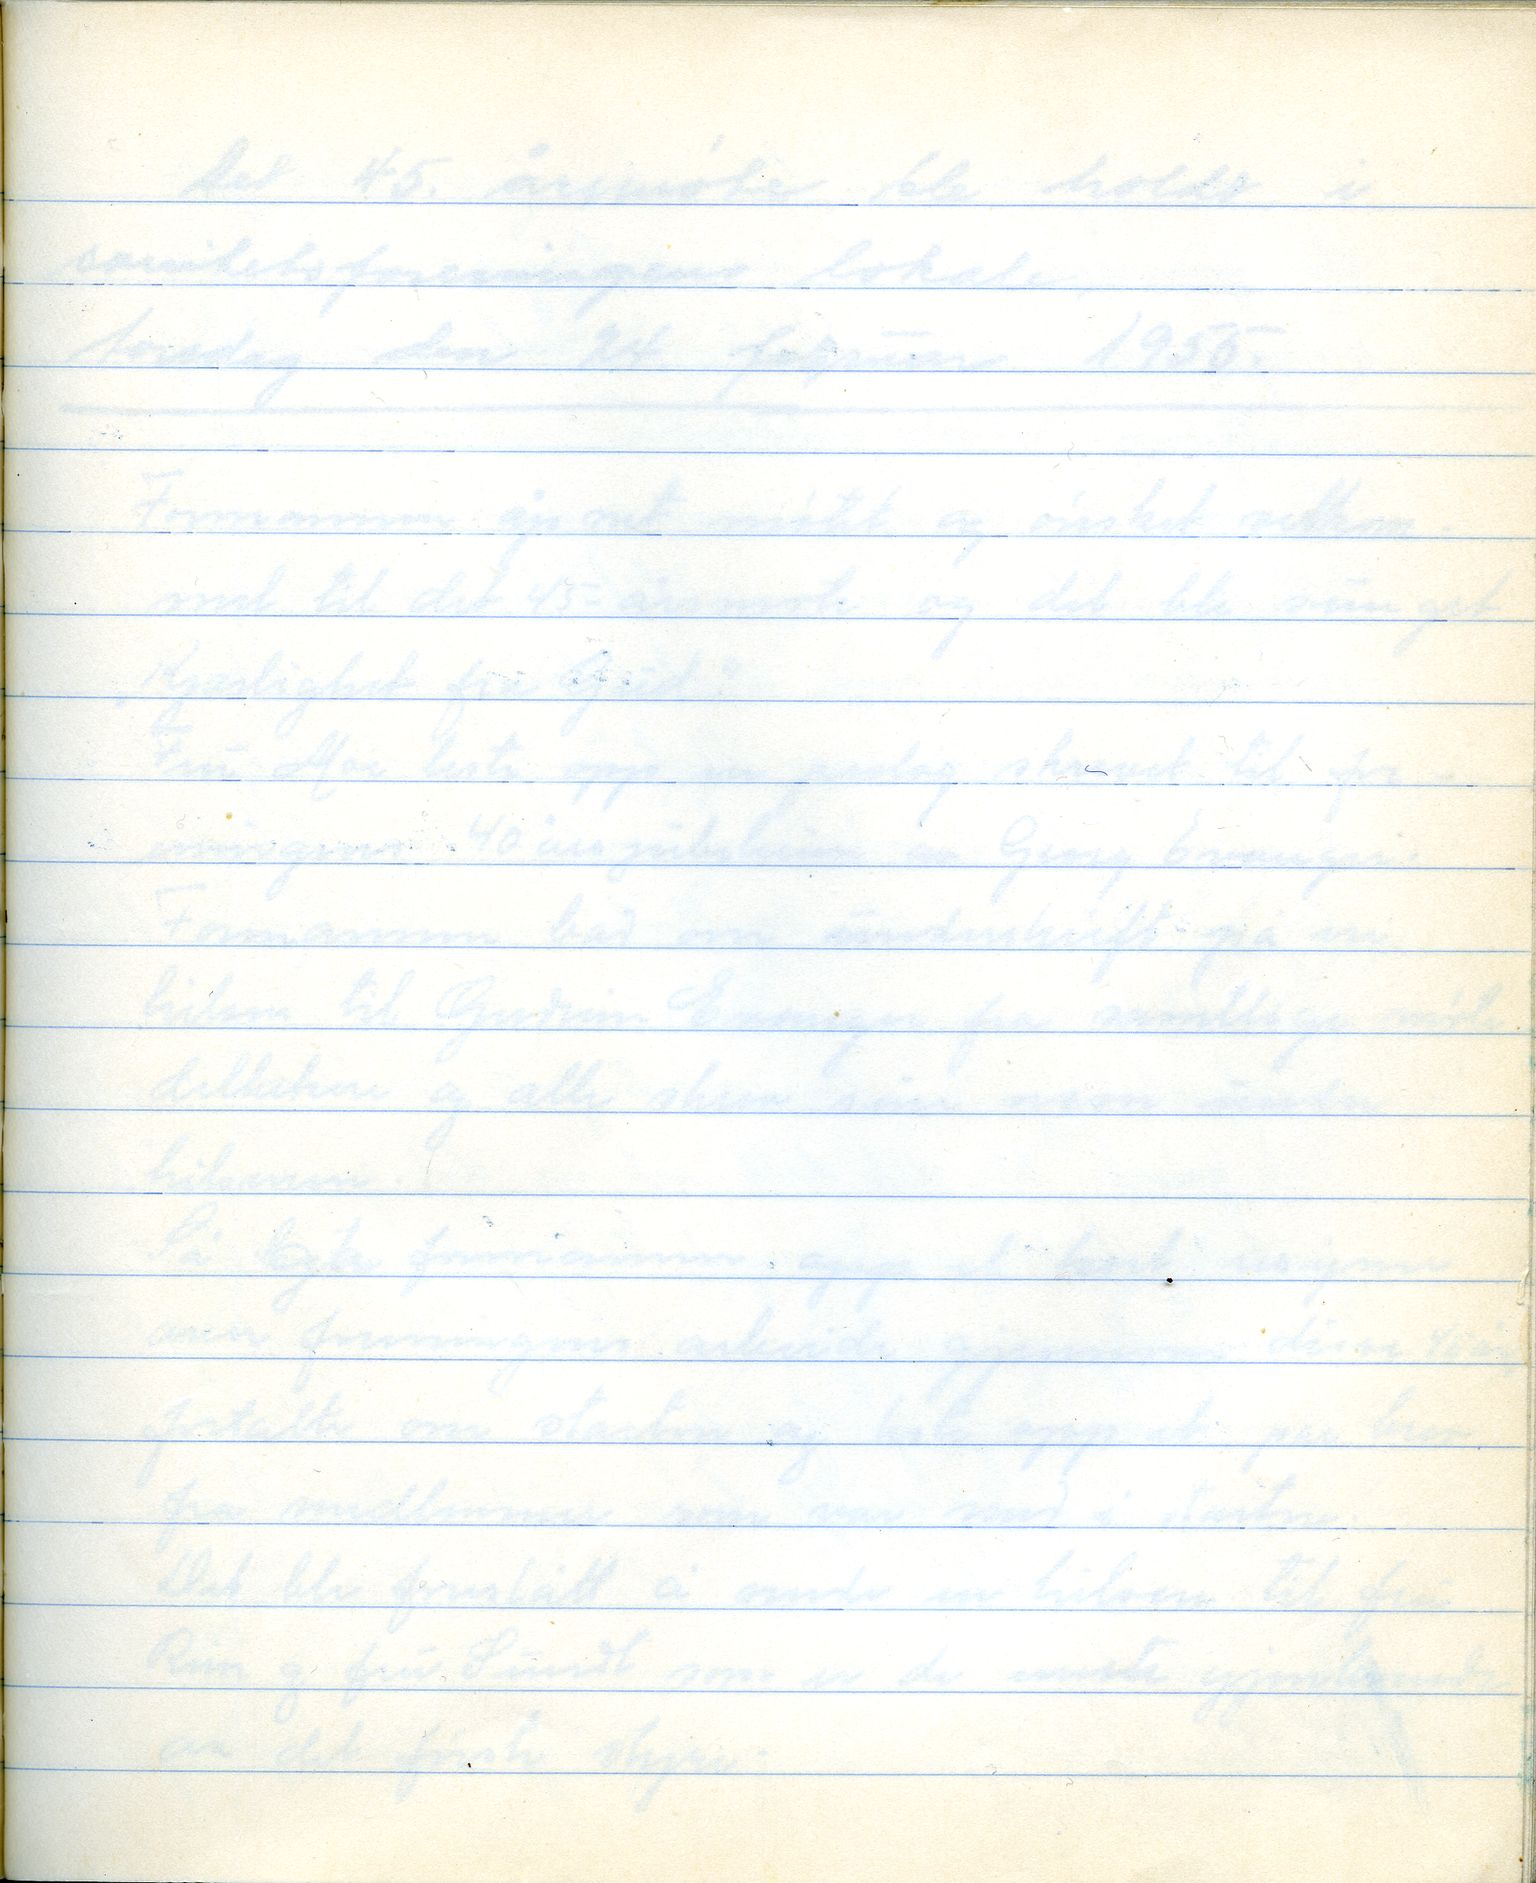 Det 45. årsmøte ble holdt i
sanitetsforeningens lokale
torsdag den 24. februar 1955.
Formannen ga vel møtt og ønsket velkom-
met til det 45-årsmøte og det ble sunget
"Kjærlighet fra Gud"
Fru Moe leste opp en prolog skrevet til for-
eningens 40 års jubileum av Georg Evanger.
Formannen bad om underskrift på en
hilsen til Gudrun Evanger fra samtlige møte
deltakere og alle skrev sine navn under
hilsenen.
Så leste formannen opp et kort resyme
over foreningens arbeide gjennom disse 45 år,
fortalte om starten og leste opp et par brev
fra medlemmer som var med i starten.
Det ble foreslått å sende en hilsen til fru
og fru Sundt som er de eneste gjenlevende
av det første styre.